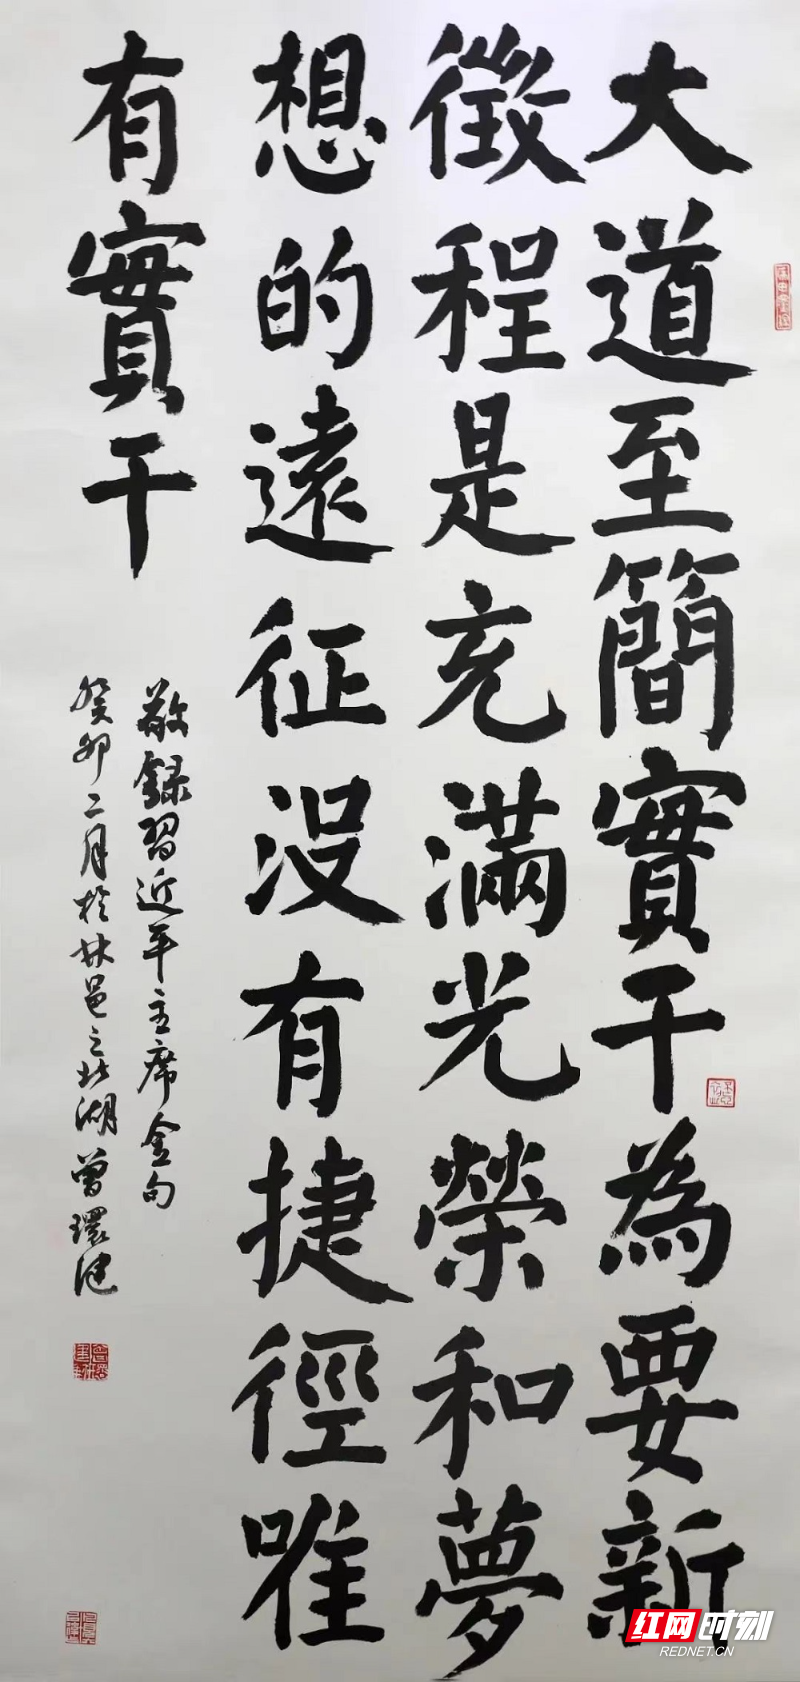 大道至簡實干為要新
徵程是充滿光榮和夢
想的遠征沒有捷徑唯
有實干
敬録習近平主席金句
癸卯二月於林邑之北湖曾環健
红网时刻
REDNET.CN